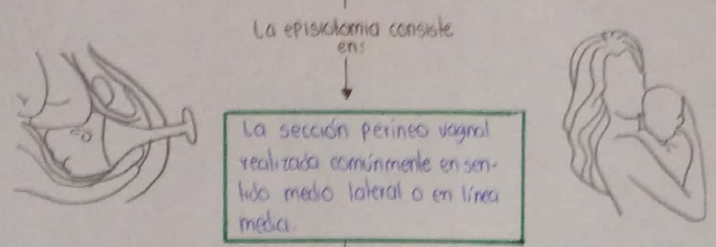 La episiotomia consiste
en:
La sección perineo vaginal
realizada comúnmente en sen-
tido medio lateral o en línea
media.